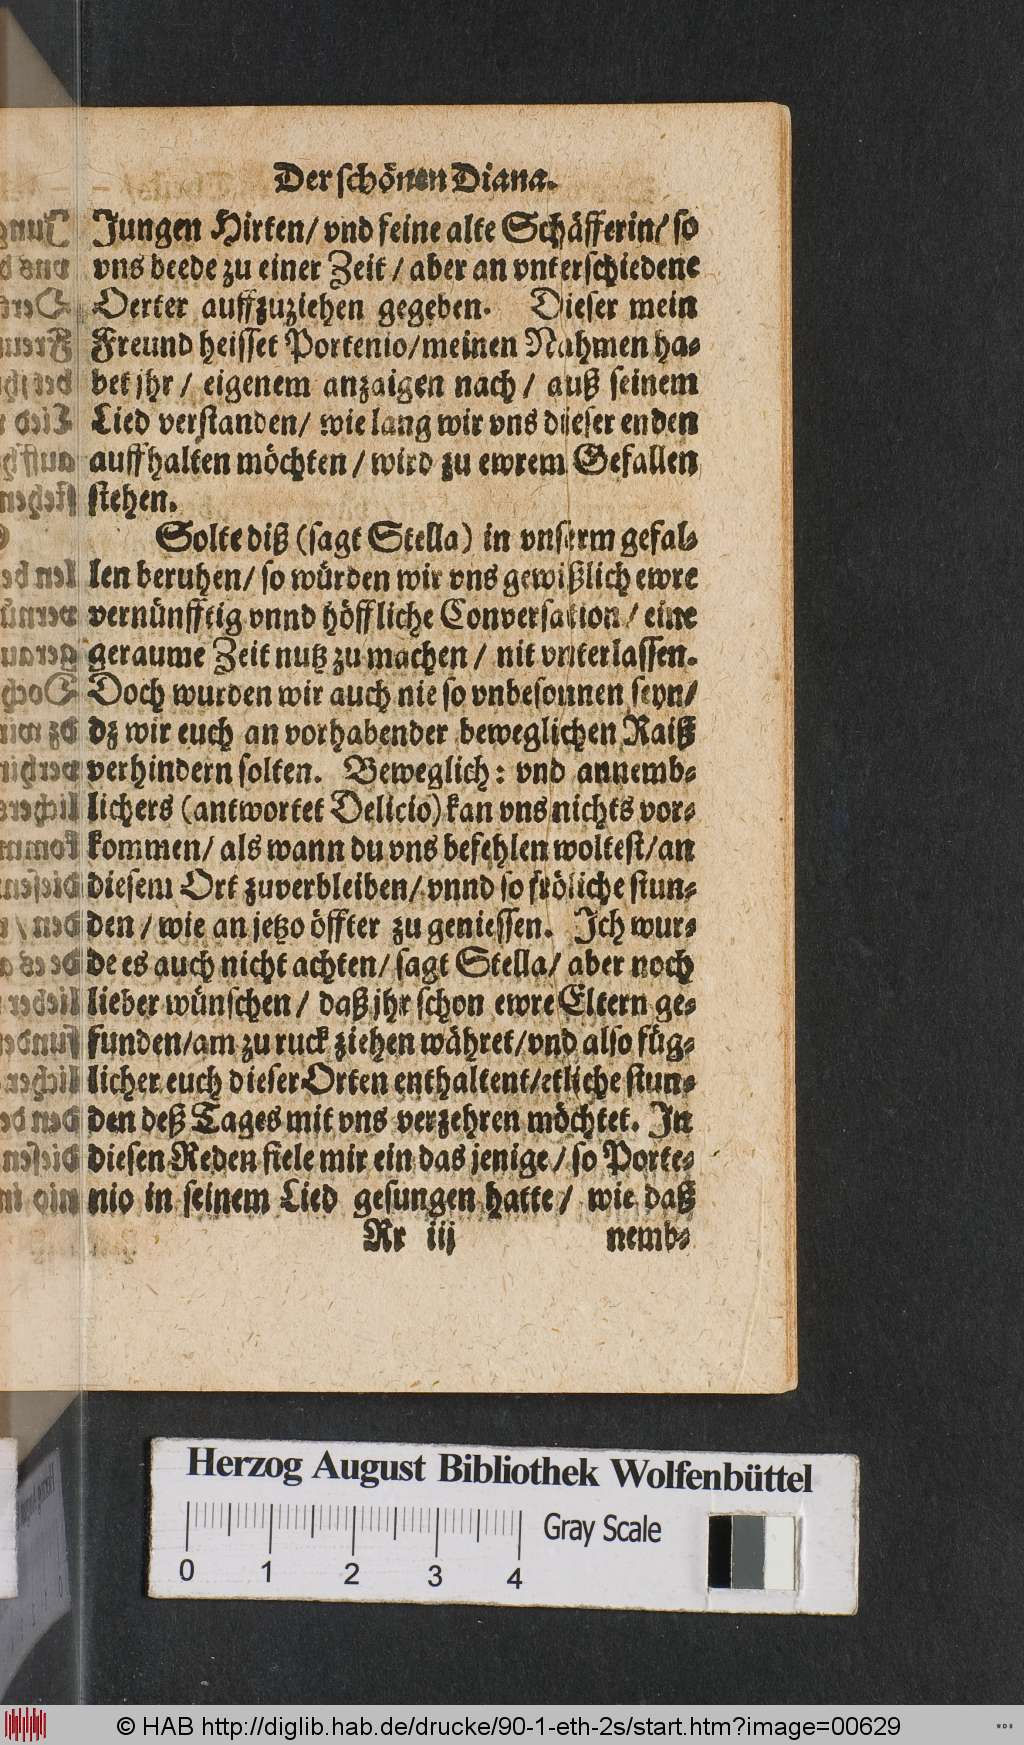 Der schönen Diana.
Jungen Hirten/ vnd feine alte Schäfferin/ so
vns beede zu einer Zeit / aber an vnterschiedene
Oerter auffzuziehen gegeben. Dieser mein
Freund heisset Portenio/meinen Nahmen ha-
bet jhr / eigenem anzaigen nach / auß seinem
Lied verstanden/ wie lang wir vns dieser enden
auffhalten möchten / wird zu ewrem Gefallen
stehen.
Solte diß (sagt Stella) in vnserm gefal-
len beruhen/ so würden wir vns gewißlich ewre
vernünfftig vnnd höffliche Conversation / eine
geraume Zeit nutz zu machen / nit vnterlassen.
Doch wurden wir auch nie so vnbesonnen seyn/
dz wir euch an vorhabender beweglichen Raiß
verhindern solten. Beweglich: vnd annemb-
lichers (antwortet Delicio) kan vns nichts vor-
kommen/ als wann du vns befehlen woltest/an
diesem Ort zuverbleiben/ vnnd so fröliche stun-
den / wie an jetzo öffter zu geniessen. Ich wur-
de es auch nicht achten/ sagt Stella/ aber noch
lieber wünschen / daß jhr schon ewre Eltern ge-
funden/am zu ruck ziehen währet/vnd also füg-
licher euch dieser Orten enthaltent/etliche stun-
den deß Tages mit vns verzehren möchtet. In
diesen Reden fiele mir ein das jenige / so Porte-
nio in seinem Lied gesungen hatte / wie daß
Rr iij nemb-
Herzog August Bibliothek Wolfenbüttel
Gray Scale
0 1 2 3 4
© HAB http://diglib.hab.de/drucke/90-1-eth-2s/start.htm?image=00629